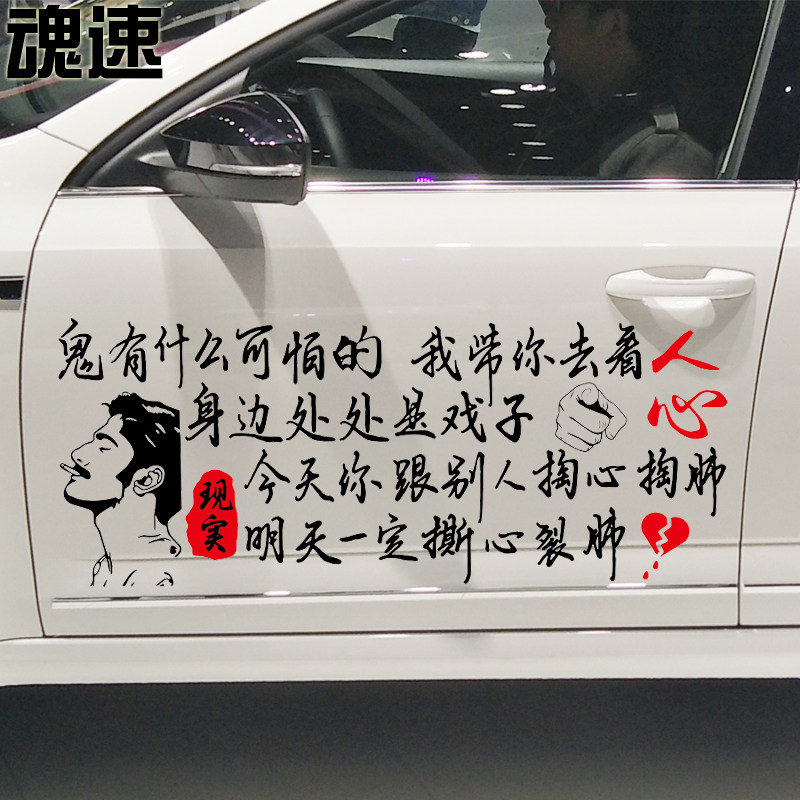 魂速
鬼有什么可怕的 我带你去看人心
身边处处是戏子
现实
今天你跟别人掏心掏肺
明天一定撕心裂肺